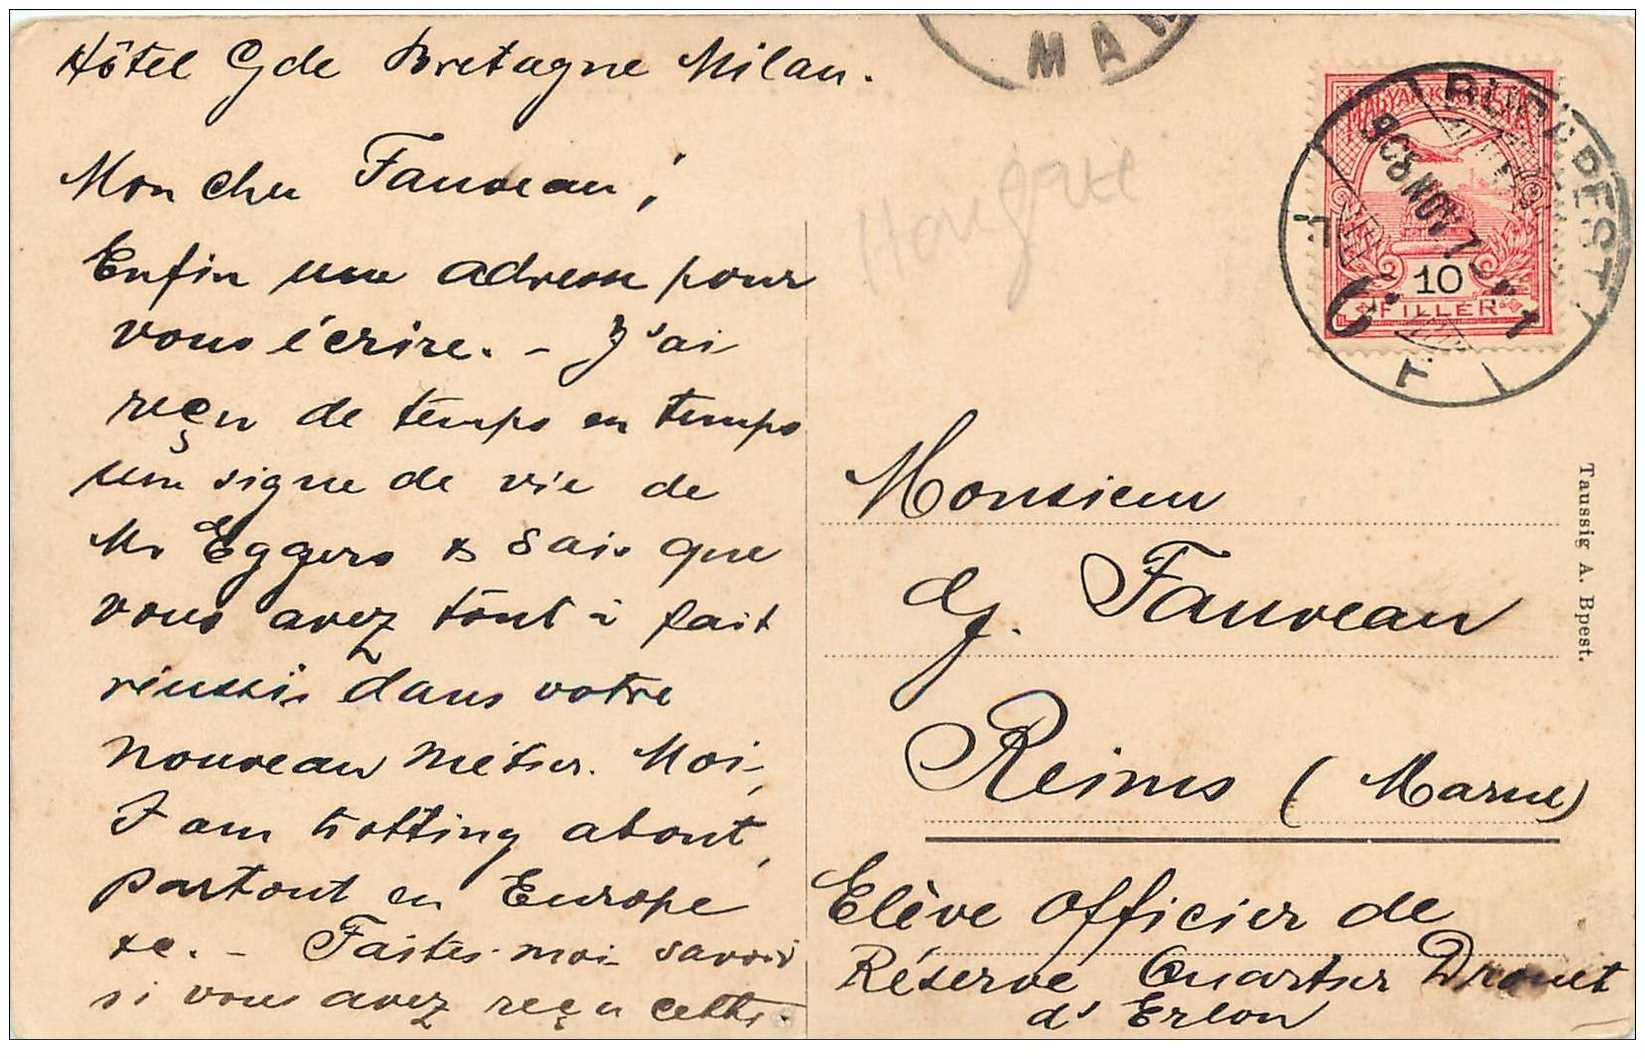 Hôtel Gde Bretagne Milan.
Mon cher Fauveau,
Enfin une adresse pour
vous écrire. - J'ai
reçu de temps en temps
un signe de vie de
Mr Eggers & sais que
vous avez tout à fait
réussis dans votre
nouveau métier. Moi,
I am trotting about,
partout en Europe
&c. - Faites-moi savoir
si vous avez reçu cette.
MAR
Hongrie
MAGYAR KIR. POSTA
10
FILLER
BUDAPEST
908 NOV 7
Monsieur
Fauveau
Reims (Marne)
Elève officier de
Réserve Quartier Drouet
d'Erlon
Taussig A. Bpest.